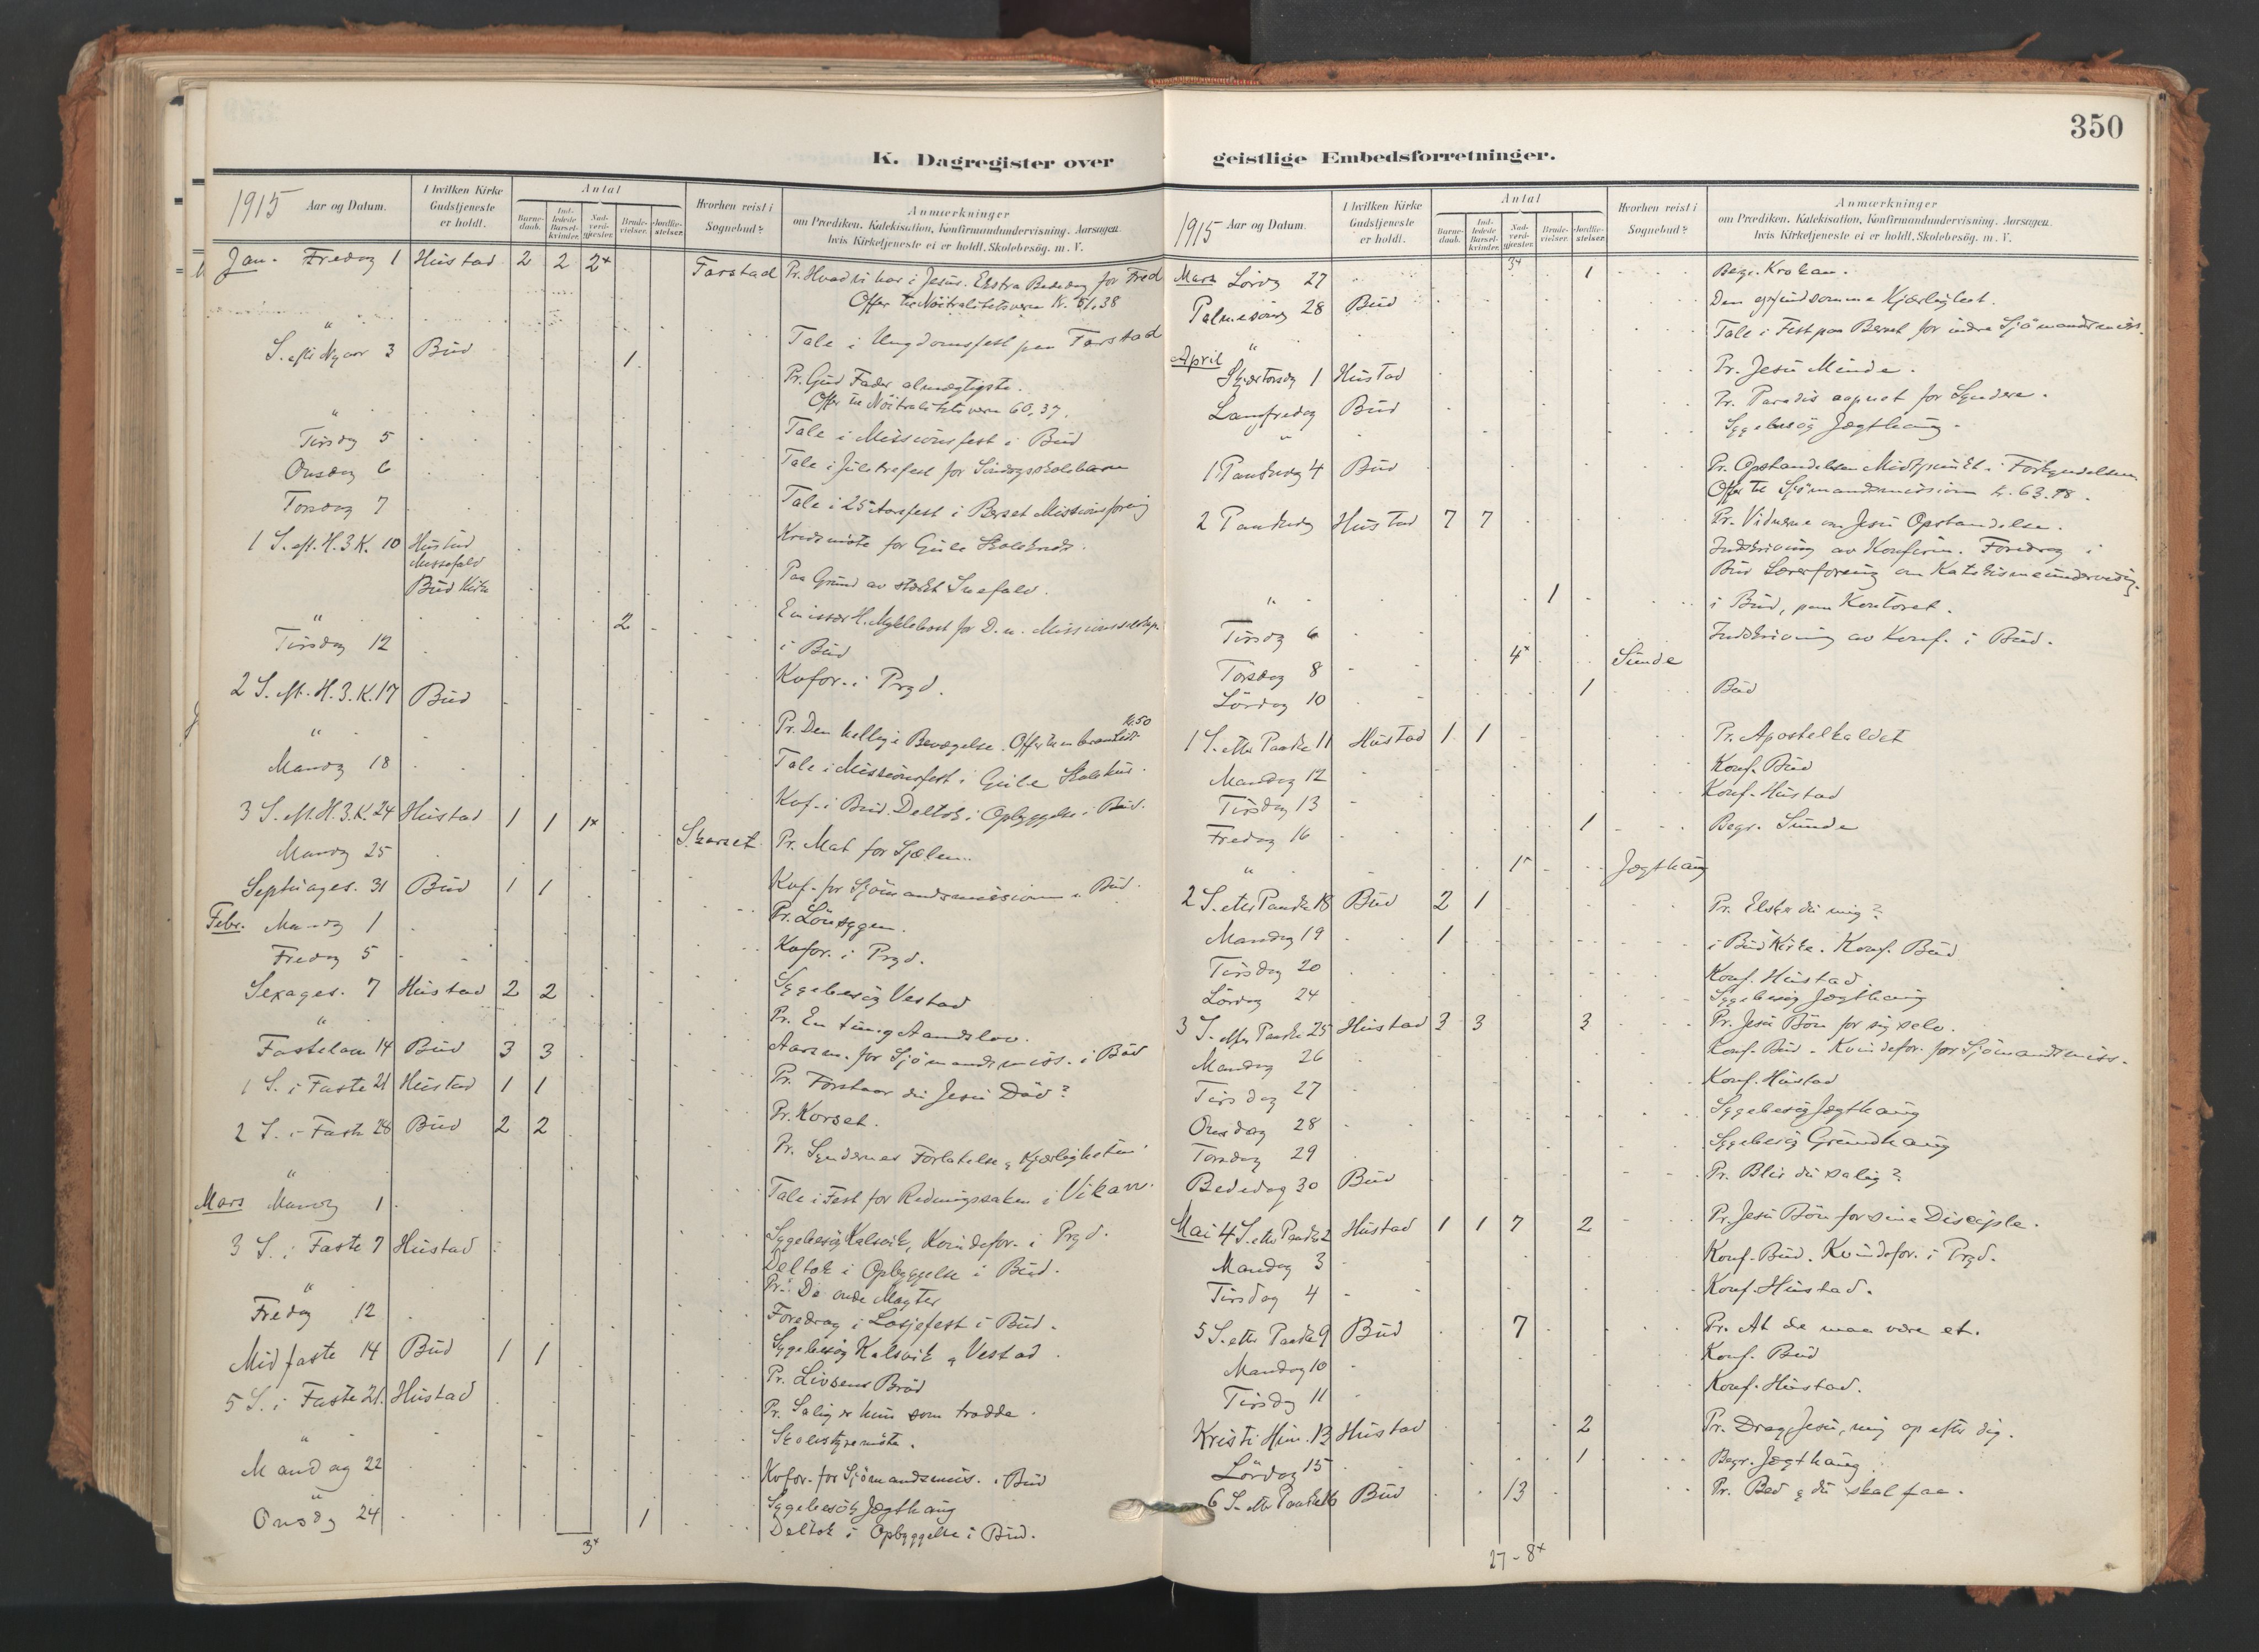 350
K. Dagregister over geistlige Embedsforretninger.
1915 Aar og Datum.
I hvilken Kirke Gudstjeneste er holdt.
Antal
Barne-daab. Ind-ledede Barsel-kvinder. Nad-verd-gjester. Brude-vielser. Jordfæ-stelser.
Hvorhen reist i Sognebud?
Anmærkninger
om Prædiken, Katekisation, Konfirmandundervisning, Aarsagen,
hvis Kirketjeneste ei er holdt, Skolebesøg. m. V.
Jan. Fredag 1 Hustad 2 2 2+ Farstad Pr. Hvad vi har i Jesus. Ekstra Bededag for Fred
Offer til Nöitralitetsvern Kr. 51.38
" Tale i Ungdomsfest paa Farstad
S. eft. Nyaar 3 Bud 1 Pr. Gud Fader almægtigste.
Offer til Nöitralitetsvern 60.37.
" Tale i Missionsfest i Bud
Tirsdag 5 Tale i Juletrefest for Söndagsskolebarn
Onsdag 6 Tale i 25 Aarsfest i Berset Missionsforening
Torsdag 7 Kredsmöte for Gule Skolekreds.
1 S. eft. H. 3 K. 10 Hustad Messefald Paa Grund av sterkt Snefald.
Bud Kirke Emissær H. Myklebost for D. n. Missionsselskap.
" 2 i Bud
Tirsdag 12 Kvfor. i Prgd.
2 S. eft. H. 3. K. 17 Bud Pr. Den hellige Bevægelse. Offer til en brandlidt Kr. 50
" Tale i Missionsfest i Gule Skolehus.
Mandag 18 Kvf. i Bud. Deltok i Opbyggelse i Bud.
3 S. eft. H. 3. K. 24 Hustad 1 1 1x Skarset Pr. Mat for Sjælen.
Mandag 25 Kvf. for Sjömandsmissionen i Bud.
Septuages. 31 Bud 1 1 Pr. Lönsygen.
Febr. Mandag 1 Kvfor. i Prgd.
Fredag 5 Sygebesög Vestad
Sexages. 7 Hustad 2 2 Pr. En tung Aandslov.
" Aarsm. for Sjömandsmiss. i Bud
Fastelavn 14 Bud 3 3 Pr. Forstaar du Jesu Död?
1 S. i Faste 21 Hustad 1 1 Pr. Korset.
2 S. i Faste 28 Bud 2 2 Pr. Syndernes Forlatelse & Kjærligheten
" Tale i Fest for Redningssaken i Vikan.
Mars Mandag 1 Sygebesög Kalsvik, Kvindefor. i Prgd.
Deltok i Opbyggelse i Bud.
3 S. i Faste 7 Hustad Pr. De onde Magter
" Foredrag i Losjefest i Bud.
Fredag 12 Sygebesög Kalsvik & Vestad.
Midfaste 14 Bud 1 1 Pr. Livsens Bröd
5 S. i Faste 21. Hustad Pr. Salig er hun som trodde.
" Skolestyremöte.
Mandag 22 Kvfor. for Sjömandsmiss. i Bud
" Sygebesök Jægthaug
Onsdag 24 1 Deltok i Opbyggelse i Bud.
3+
1915 Aar og Datum.
I hvilken Kirke Gudstjeneste er holdt.
Antal
Barne-daab. Ind-ledede Barsel-kvinder. Nad-verd-gjester. Brude-vielser. Jordfæ-stelser.
Hvorhen reist i Sognebud?
Anmærkninger
om Prædiken, Katekisation, Konfirmandundervisning, Aarsagen,
hvis Kirketjeneste ei er holdt, Skolebesög. m. V.
3+
Mars Lördag 27 1 Begr. Krokan.
Palmesöndag 28 Bud Den opofrende Kjærlighet.
" Tale i Fest paa Berset for indre Sjömandsmiss.
April Skjærtorsdag 1 Hustad Pr. Jesu Minde.
Langfredag Bud Pr. Paradis aapnet for Syndere.
" Sygebesög Jægthaug.
1 Paaskedag 4 Bud Pr. Opstandelsen Midtpunkt i Forkyndelsen
Offer til Sjömandsmissionen kr. 63.98.
2 Paaskedag Hustad 7 7 Pr. Vidnerne om Jesu Opstandelse.
Indskrivning av Konfirm. Foredrag i
Bud Lærerforening om Katekismeundervisning.
" 1 i Bud, paa Kontoret.
Tirsdag 6 Indskrivning av Konf. i Bud.
Torsdag 8 4x Sunde
Lördag 10 1 Bud
1 S. etter Paaske 11 Hustad 1 1 Pr. Apostelkaldet
Mandag 12 Konf. Bud
Tirsdag 13 Konf. Hustad
Fredag 16 1 Begr. Sunde
" 1+ Jægthaug
2 S. etter Paaske 18 Bud 2 1 Pr. Elsker du mig?
Mandag 19 1 i Bud Kirke. Konf. Bud
Tirsdag 20 Konf. Hustad
Lördag 24 Sygebesög Jægthaug
3 S. efter Paaske 25 Hustad 3 3 3 Pr. Jesu Bön for sig selv.
Mandag 26 Konf. Bud. Kvindefor. for Sjömandsmiss.
Tirsdag 27 Konf. Hustad
Onsdag 28 Sygebesög Jægthaug
Torsdag 29 Sygebesög Grundhaug
Bededag 30 Bud Pr. Blir du salig?
Mai 4 S. etter Paaske 2 Hustad 1 1 7 2 Pr. Jesu Bön for sine Disciple.
Mandag 3 Konf. Bud. Kvindefor. i Prgd.
Tirsdag 4 Konf. Hustad.
5 S. etter Paaske 9 Bud 7 Pr. At de maa være et.
Mandag 10 Konf. Bud
Tirsdag 11 Konf. Hustad.
Kristi Him. 13 Hustad 2 Pr. Drag, Jesu, mig op efter dig.
Lördag 15 1 Begr. Jægthaug
6 S. etter Paaske 16 Bud 13 Pr. Bed & du skal faa.
27 - 8+